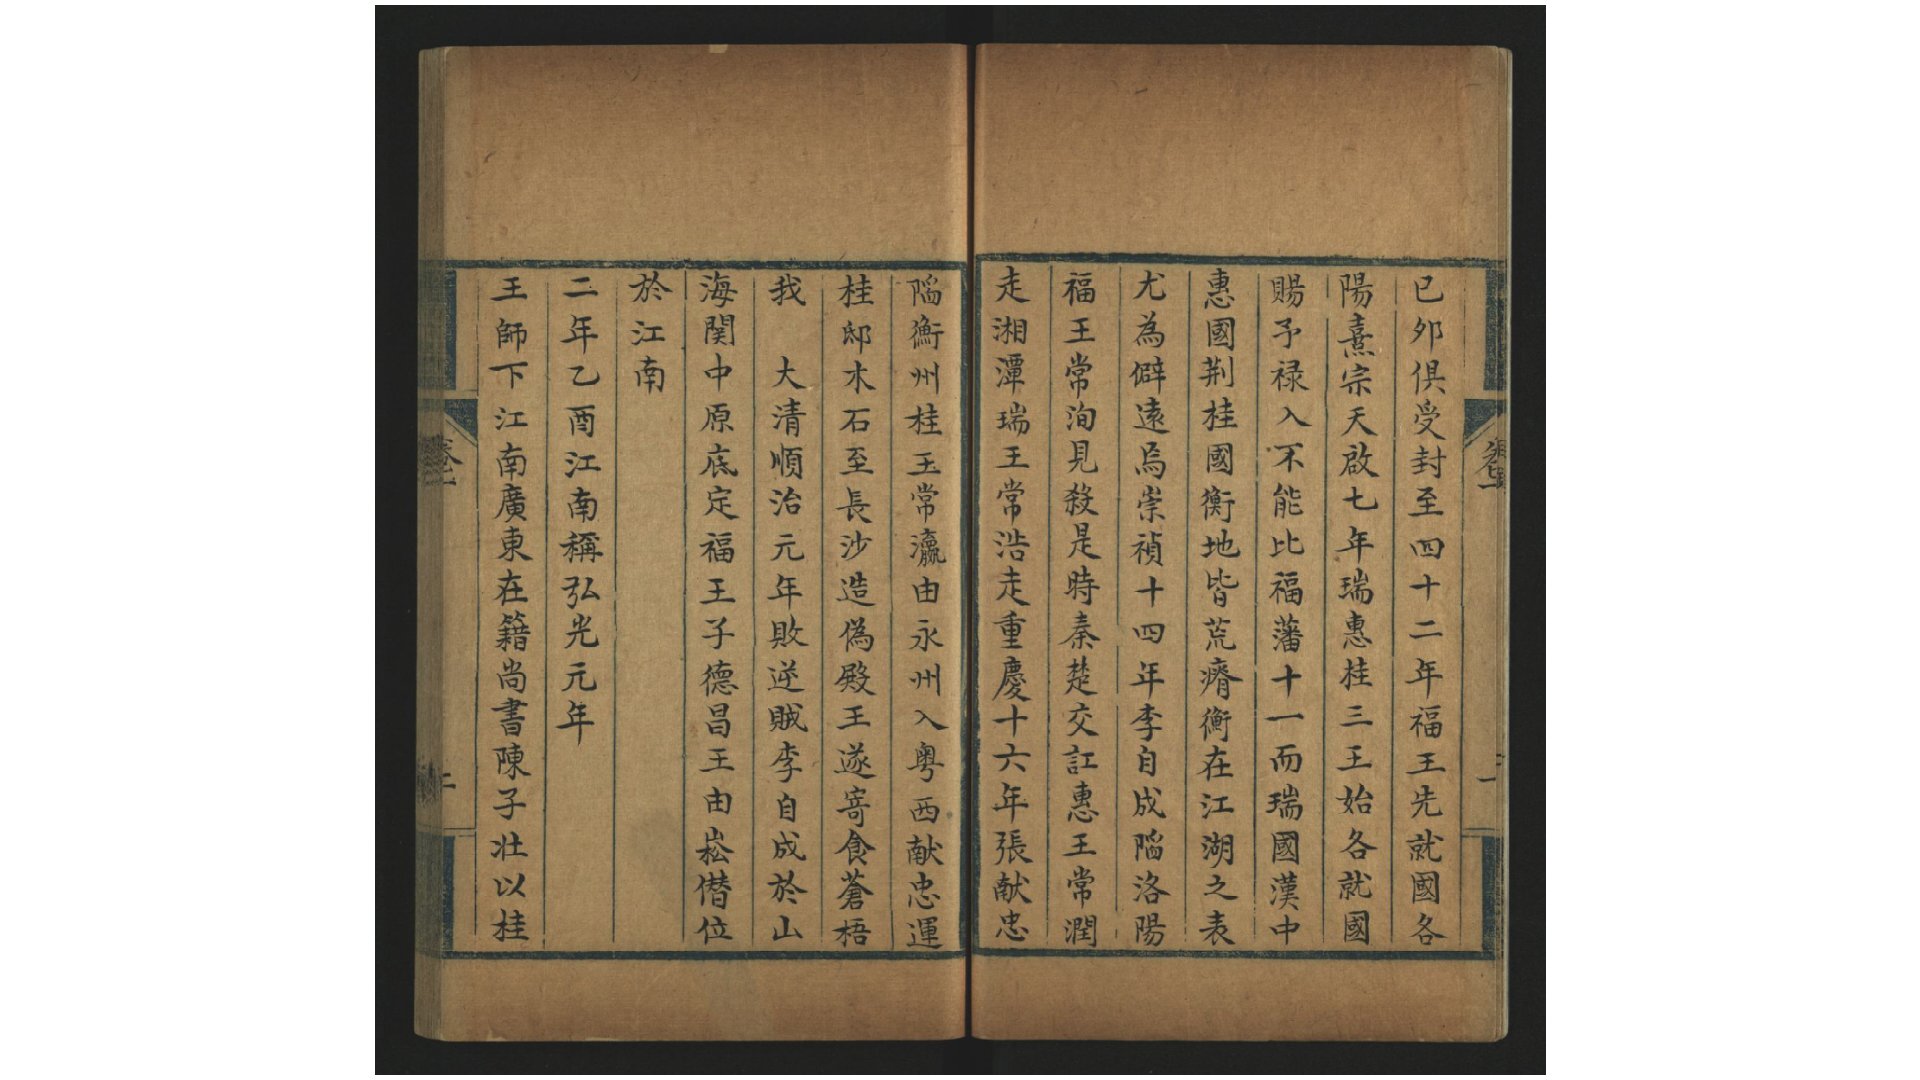 已夘俱受封至四十二年福王先就國各
陽熹宗天啟七年瑞惠桂三王始各就國
賜予禄入不能比福藩十一而瑞國漢中
惠國荆桂國衡地皆荒瘠衡在江湖之表
尤為僻遠烏崇禎十四年李自成陷洛陽
福王常洵見殺是時秦楚交訌惠王常潤
走湘潭瑞王常浩走重慶十六年張献忠
陷衡州桂王常瀛由永州入粤西献忠運
桂邸木石至長沙造偽殿王遂寄食蒼梧
我　大清順治元年敗逆賊李自成於山
海関中原底定福王子德昌王由崧僣位
於江南
二年乙酉江南稱弘光元年
王師下江南廣東在籍尚書陳子壮以桂